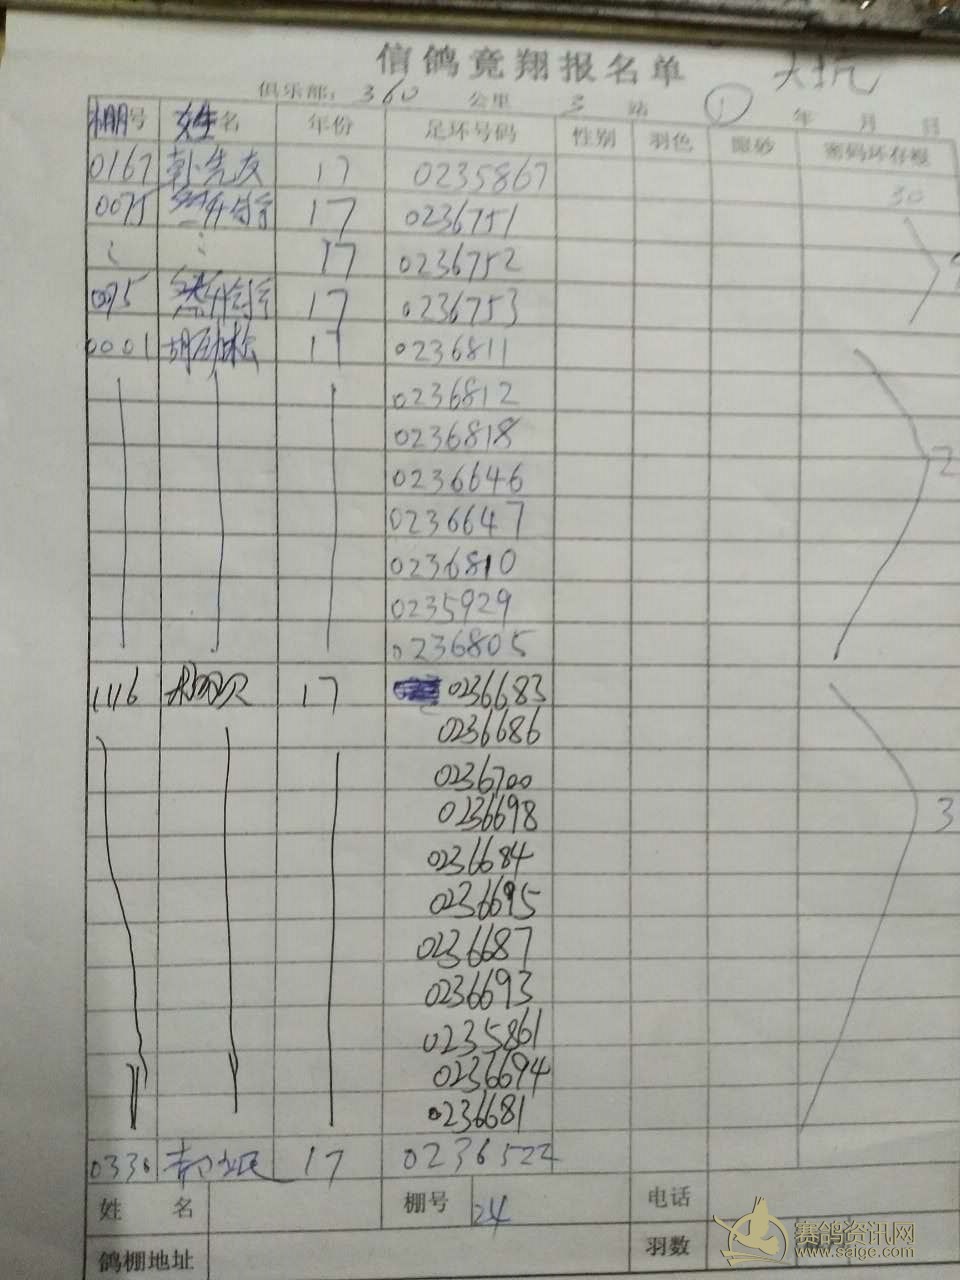 信鸽竟翔报名单 大坑
俱乐部: 360 公里 3 站 ① 年 月 日
棚号 姓名 年份 足环号码 性别 羽色 眼砂 密码环存根
0167 17 0235867 30
0075 17 0236751
17 0236752
0075 17 0236753
0001 17 0236811
0236812
0236818 2
0236646
0236647
0236810
0235929
0236805
1116 17 0236683
0236686
0236700
0236698 3
0236684
0236695
0236687
0236693
0235861
0236694
0236681
17 0236522
姓 名 棚号 24 电话
鸽棚地址 羽数
赛鸽资讯网
www.saige.com